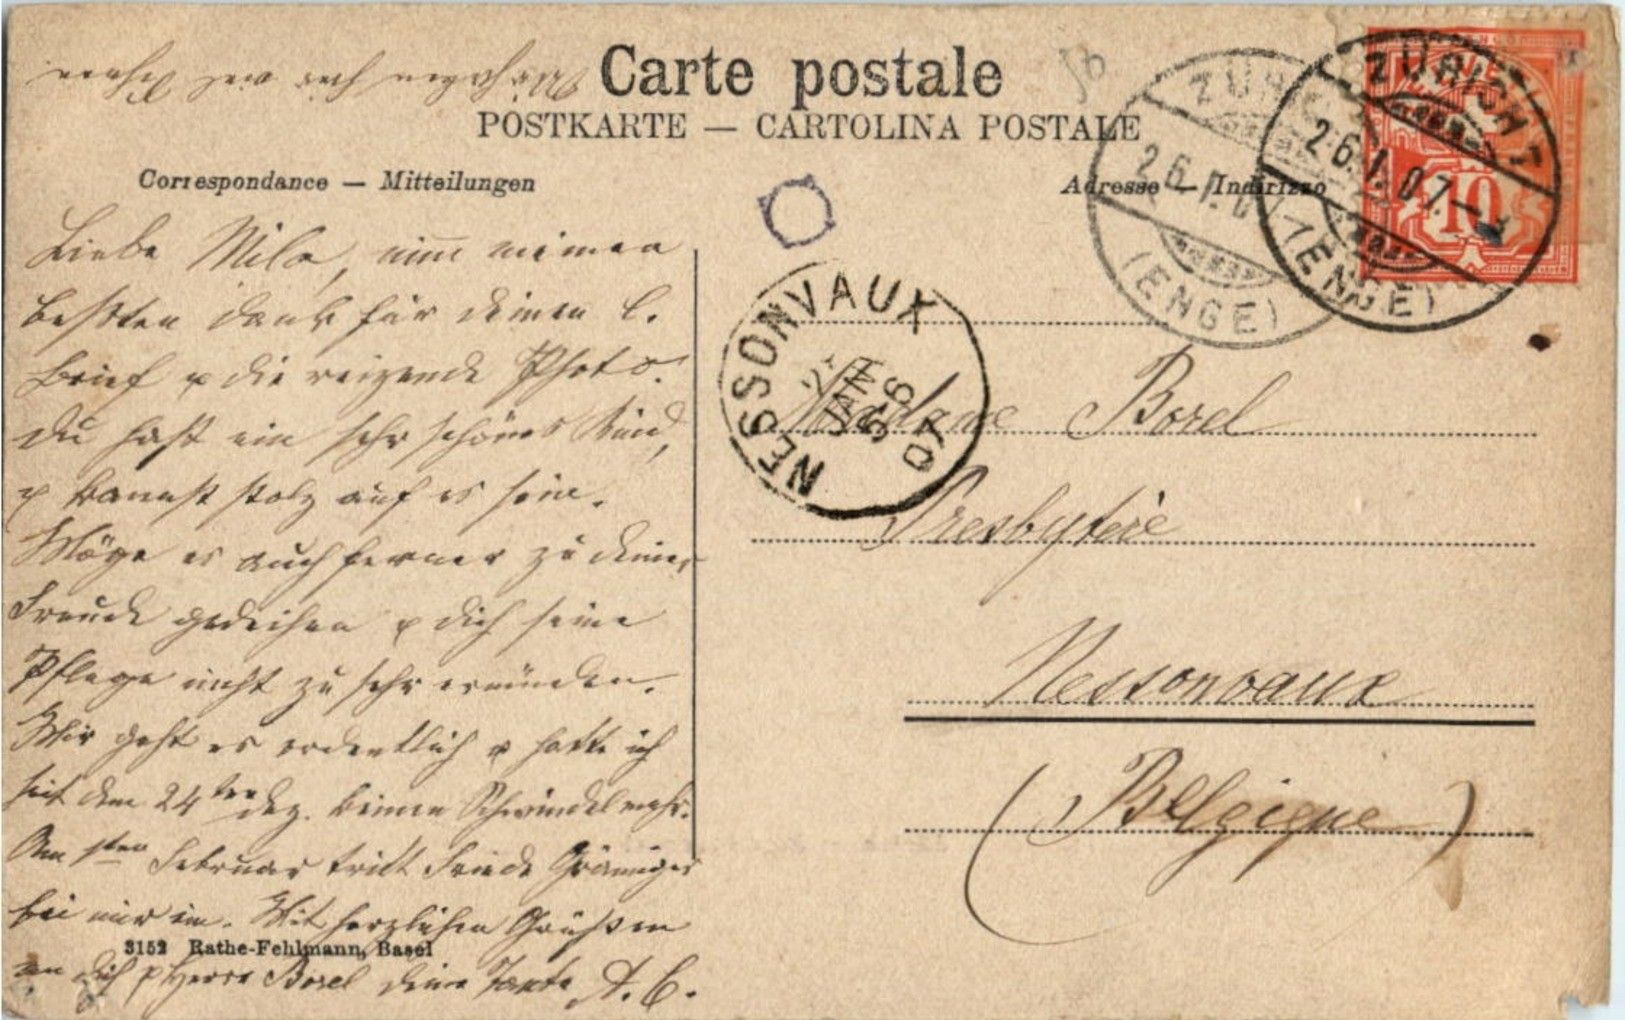 Carte postale
POSTKARTE — CARTOLINA POSTALE
Correspondance — Mitteilungen
Adresse — Indirizzo
ZÜRICH
26.I.07
(ENGE)
ZÜRICH 7
26.I.07.—
(ENGE)
10
NESSONVAUX
JANV
07
Liebe Mila, nimm meinen
besten Dank für deinen l.
Brief u die reizende Photo.
Du hast ein sehr schönes Kind,
u kannst stolz auf es sein.
Möge es auch ferner zu deiner
Freude gedeihen u dich seine
Pflege nicht zu sehr ermüden.
Mir geht es ordentlich u hatte ich
seit dem 24ten Dez. keinen Schwindel mehr.
Am 1sten Februar tritt Frieda
bei mir ein. Mit herzlichen Grüßen
an dich u Herrn Borel deine Tante A. C.
3152 Rathe-Fehlmann, Basel
Madame Borel
Presbytère
Nessonvaux
(Belgique)